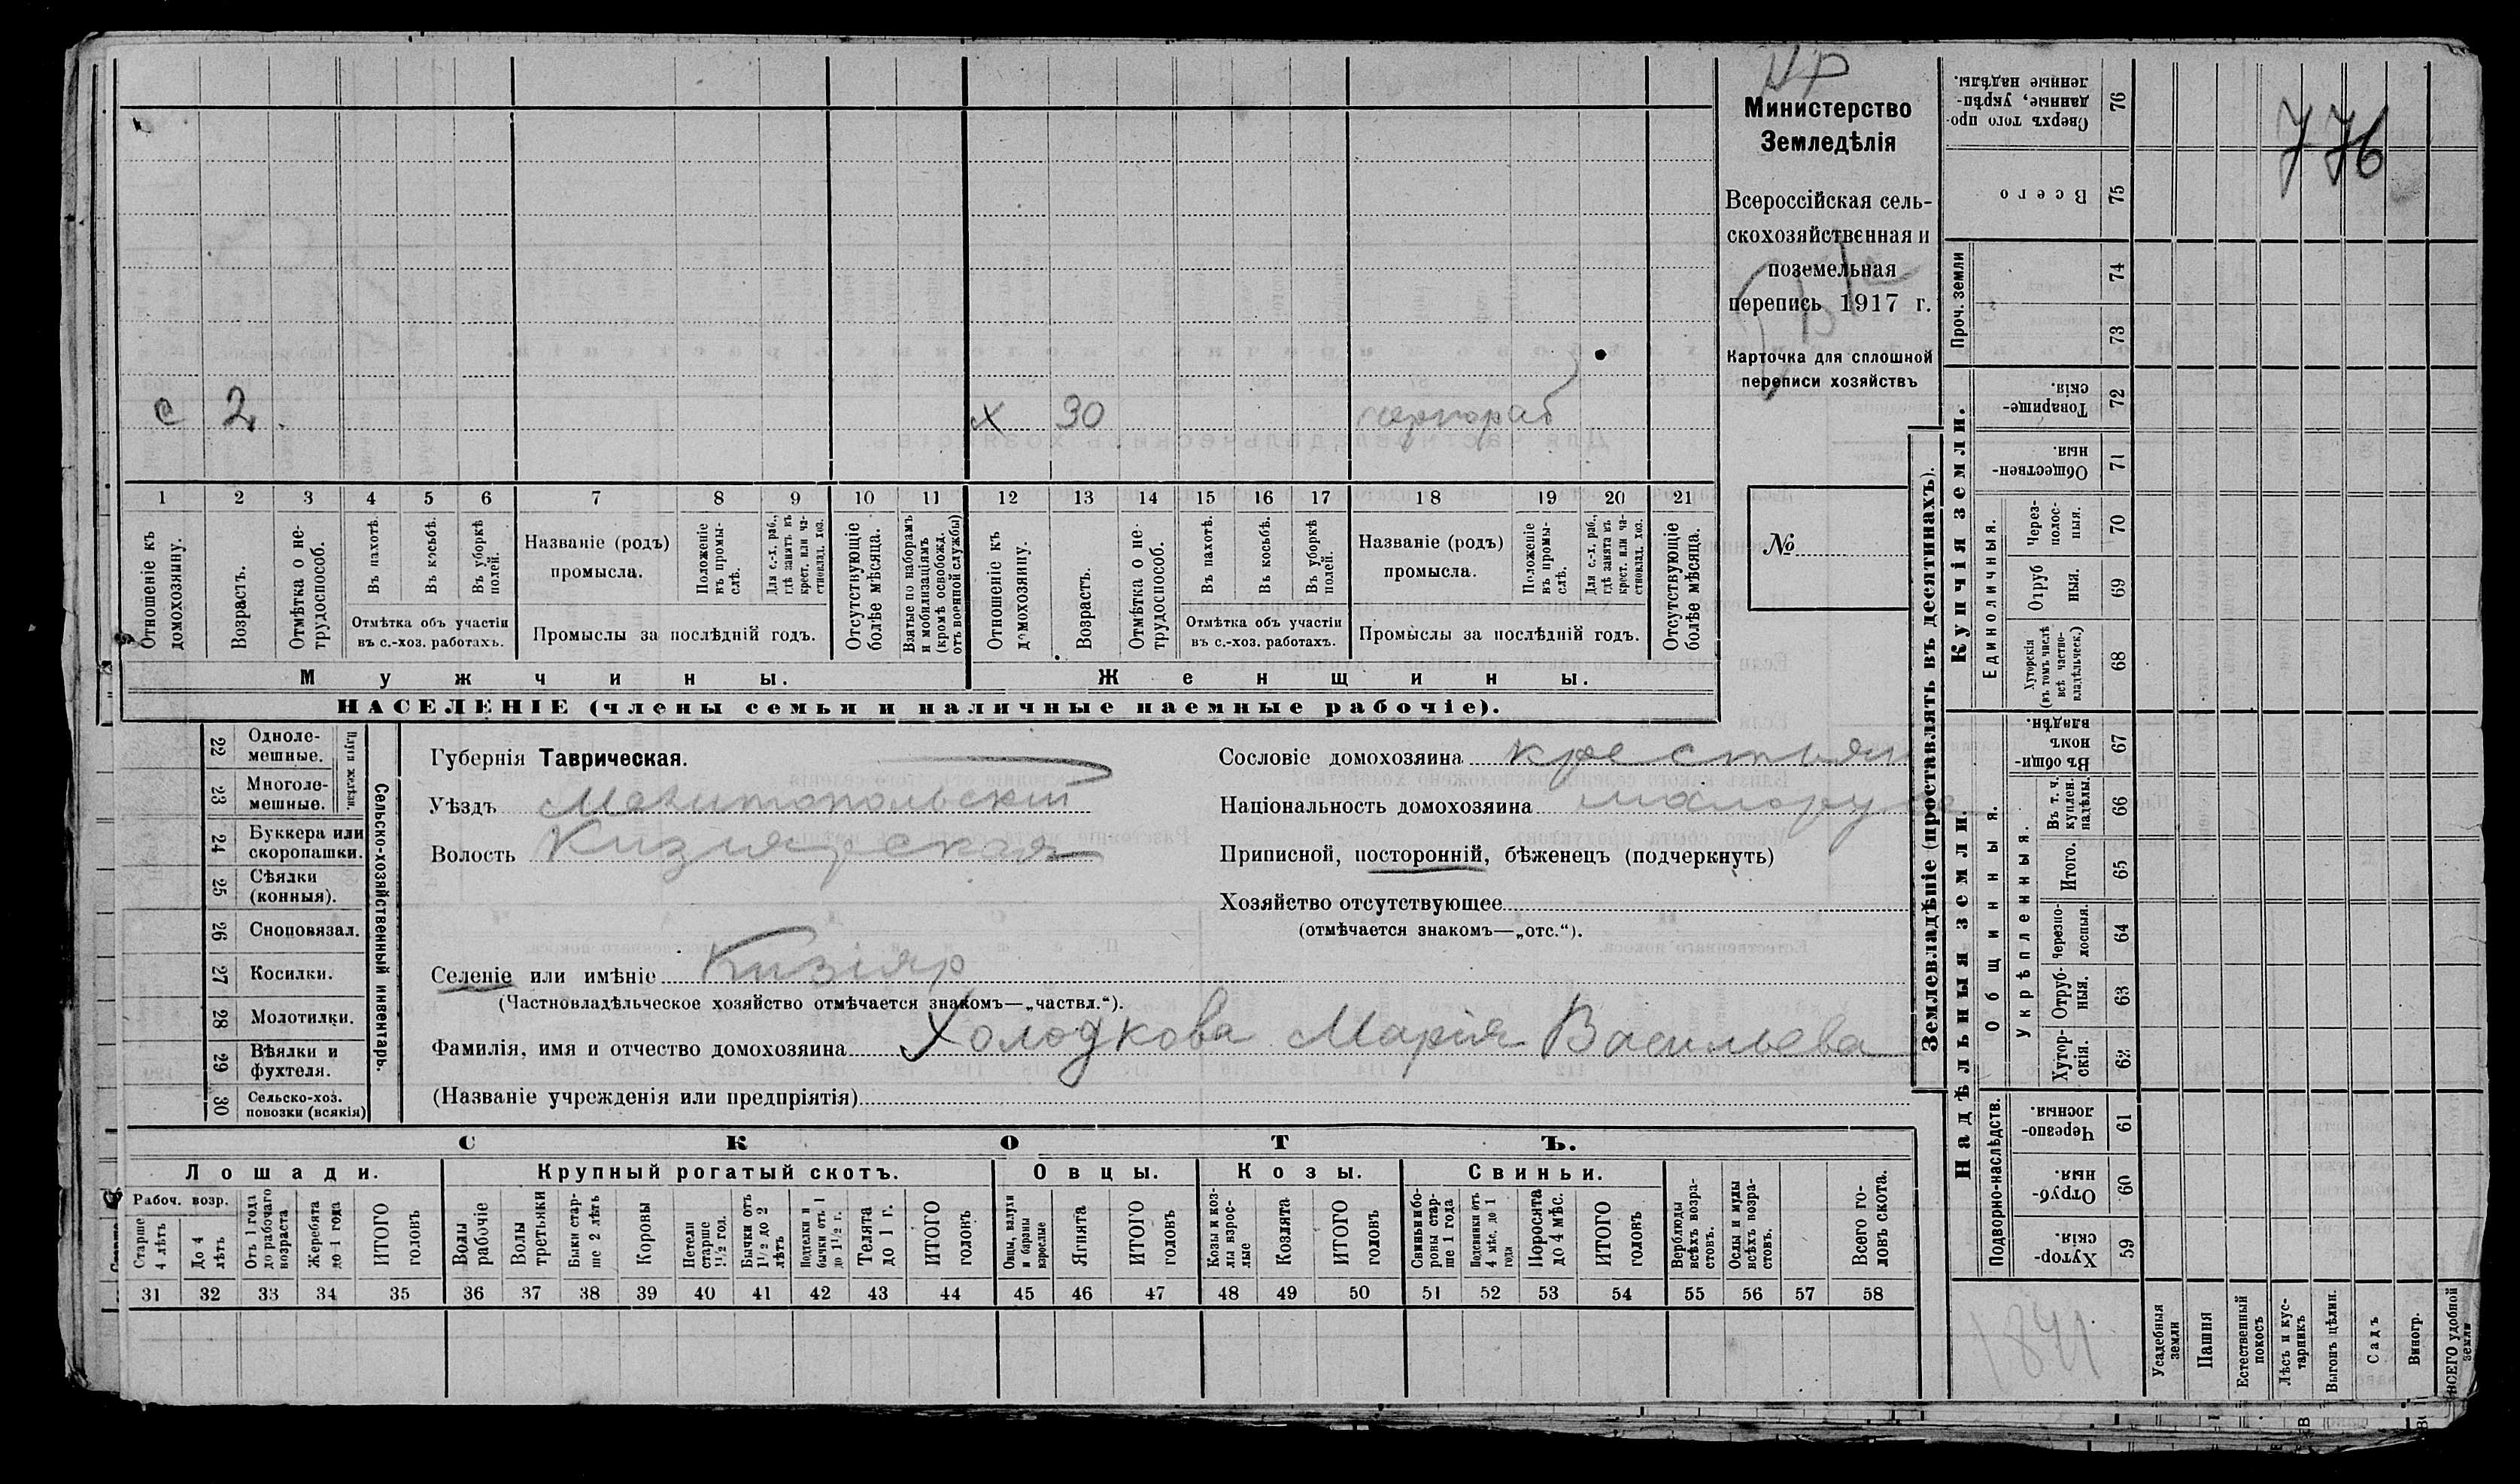 Министерство
Земледѣлія
Всероссійская сель-
скохозяйственная и
поземельная
перепись 1917 г.
Карточка для сплошной
переписи хозяйствъ
№
776
с 2. х 30 чернораб
1 2 3 4 5 6 7 8 9 10 11 12 13 14 15 16 17 18 19 20 21
Отношеніе къ домохозяину.
Возрастъ.
Отмѣтка о не-трудоспособ.
Въ пахотѣ.
Въ косьбѣ.
Въ уборкѣ полей.
Отмѣтка объ участіи
въ с.-хоз. работахъ.
Названіе (родъ)
промысла.
Положеніе въ промы-слѣ.
Для с.-х. раб., гдѣ занятъ въ крест. или ча-стновлад. хоз.
Промыслы за послѣдній годъ.
Отсутствующіе болѣе мѣсяца.
Взятые по наборамъ и мобилизаціямъ (кромѣ освобожд. отъ военной службы)
Отношеніе къ домохозяину.
Возрастъ.
Отмѣтка о не-трудоспособ.
Въ пахотѣ.
Въ косьбѣ.
Въ уборкѣ полей.
Отмѣтка объ участіи
въ с.-хоз. работахъ.
Названіе (родъ)
промысла.
Положеніе въ промы-слѣ.
Для с.-х. раб., гдѣ занята въ крест. или ча-стновлад. хоз.
Промыслы за послѣдній годъ.
Отсутствующіе болѣе мѣсяца.
Мужчины. Женщины.
НАСЕЛЕНІЕ (члены семьи и наличные наемные рабочіе).
22 Однолемешные.
23 Многолемешные.
Плуги желѣзн.
24 Буккера или скоропашки.
25 Сѣялки (конныя).
26 Сноповязал.
27 Косилки.
28 Молотилки.
29 Вѣялки и фухтеля.
30 Сельско-хоз. повозки (всякія)
Сельско-хозяйственный инвентарь.
Губернія Таврическая.
Уѣздъ Мелитопольскій
Волость Кизіярская
Сословіе домохозяина крестьян
Національность домохозяина малорус
Приписной, посторонній, бѣженецъ (подчеркнуть)
Хозяйство отсутствующее
(отмѣчается знакомъ—„отс.“).
Селеніе или имѣніе Кизіяр
(Частновладѣльческое хозяйство отмѣчается знакомъ—„частвл.“).
Фамилія, имя и отчество домохозяина Холодкова Марія Васильева
(Названіе учрежденія или предпріятія)
СКОТЪ.
Лошади. Крупный рогатый скотъ. Овцы. Козы. Свиньи.
Рабоч. возр.
Старше 4 лѣтъ
До 4 лѣтъ
Отъ 1 года до рабочаго возраста
Жеребята до 1 года
ИТОГО головъ
Волы рабочіе
Волы третьяки
Быки стар-ше 2 лѣтъ
Коровы
Нетели старше 1½ гол.
Бычки отъ 1½ до 2 лѣтъ
Подтелки и бычки отъ 1 до 1½ г.
Телята до 1 г.
ИТОГО головъ
Овцы, валухи и бараны взрослые
Ягнята
ИТОГО головъ
Козы и коз-лы взрос-лые
Козлята
ИТОГО головъ
Свиньи и бо-ровы стар-ше 1 года
Подсвинки отъ 4 мѣс. до 1 года
Поросята до 4 мѣс.
ИТОГО головъ
Верблюды всѣхъ возра-стовъ.
Ослы и мулы всѣхъ возра-стовъ.
Всего го-ловъ скота.
31 32 33 34 35 36 37 38 39 40 41 42 43 44 45 46 47 48 49 50 51 52 53 54 55 56 57 58
Землевладѣніе (проставлять въ десятинахъ).
Сверхъ того про-данные, укрѣп-ленные надѣлы. 76
Всего 75
Проч. земли 74 73
Купчія земли.
Товарище-скія. 72
Обществен-ныя. 71
Единоличныя.
Через-полос-ныя. 70
Отруб ныя. 69
Хуторскія (въ томъ числѣ всѣ частно-владѣльческ.) 68
Надѣльныя земли.
Общинныя.
Въ общи-номъ владѣн. 67
Укрѣпленныя.
Въ т. ч. куплен. надѣлы. 66
Итого. 65
Черезпо-лосныя. 64
Отруб-ныя. 63
Хутор-скія. 62
Подворно-наслѣдств.
Черезпо-лосныя. 61
Отруб-ныя. 60
Хутор-скія. 59
1841
Усадебныя земли
Пашня
Естественный покосъ
Лѣсъ и кус-тарникъ
Выгонъ цѣлин.
Садъ
Виногр.
ВСЕГО удобной земли